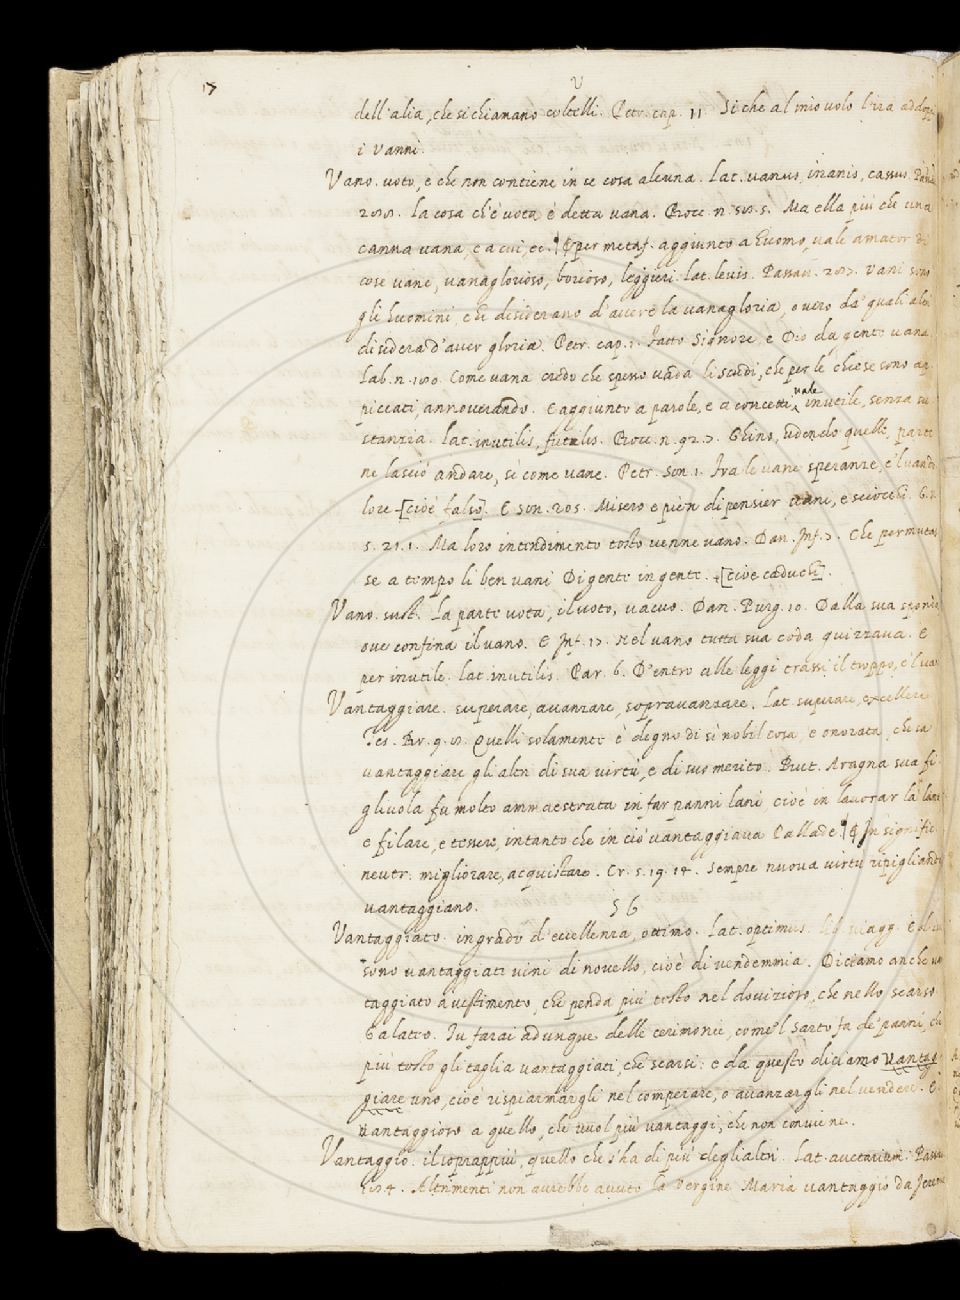 17
V
dell'alia, che si chiamano coltelli. Petr. cap. 11. Si che al mio volo l'ira addoppi
i vanni.
Vano. voto, e che non contiene in se cosa alcuna. Lat. vanus, inanis, cassus.
La cosa ch'è vota è detta vana. Bocc. n. Ma ella più che una
canna vana, e a cui, ec. per metaf. aggiunto a huomo, vale amator di
cose vane, vanaglorioso, borioso, leggieri. Lat. levis. Passav. Vani sono
gli huomini, che disiderano d'avere la vanagloria, o vero da' quali
disidera d'aver gloria. Petr. cap. 1. Fatto Signore, e Dio da gente vana
Lab. n. Come vana credo che spesso vada li scudi, che per le chiese sono ap
piccati, annoverando. E aggiunto a parole, e a concetti, vale inutile, senza su
stanzia. Lat. inutilis, futilis. Bocc. n. 92. 7. Ghino, udendo quelle, parte
ne lasciò andare, sì come vane. Petr. Son. 1. Fra le vane speranze, e 'l van do
lore [cioè falso]. E son. 205. Misero e pien di pensier vani, e sciocchi. G. V.
5. 21. 1. Ma loro intendimento tosto venne vano. Dan. Inf. 7. Che permutas
se a tempo li ben vani Di gente in gente. [cioè caduchi].
Vano. sust. La parte vota, il voto, vacuo. Dan. Purg. 10. Dalla sua sponda
ove confina il vano. E Inf. 17. Nel vano tutta sua coda guizzava. E
per inutile. Lat. inutilis. Par. 6. D'entro alle leggi trassi il troppo, e 'l va
Vantaggiare. superare, avanzare, sopravanzare. Lat. superare, excellere
Tes. Br. 9. 8. Quelli solamente è degno di sì nobil cosa, e onorata, che sa
vantaggiare gli altri di sua virtù, e di suo merito. But. Aragna sua fi
gliuola fu molto ammaestrata in far panni lani cioè in lavorar la lana
e filare, e tessere, intanto che in ciò vantaggiava Pallade. In signific.
neutr. migliorare, acquistare. Cr. 5. 19. 14. Sempre nuova virtù ripigliando
vantaggiano.
56
Vantaggiato. in grado d'eccellenza, ottimo. Lat. optimus.
sono vantaggiati vini di novello, cioè di vendemmia. Diciamo anche van
taggiato a vestimento, che penda più tosto nel dovizioso, che nello scarso
Galateo. Tu farai adunque delle cerimonie, come 'l sarto fa de' panni, che
più tosto gli taglia vantaggiati, che scarsi: e da questo diciamo Vantag
giare uno, cioè risparmargli nel comperare, o avanzargli nel vendere. E
vantaggioso a quello, che vuol più vantaggi, che non conviene.
Vantaggio. il soprappiù, quello che s'ha di più degli altri. Lat. auctarium. Passav
Altrimenti non avrebbe avuto la Vergine Maria vantaggio da